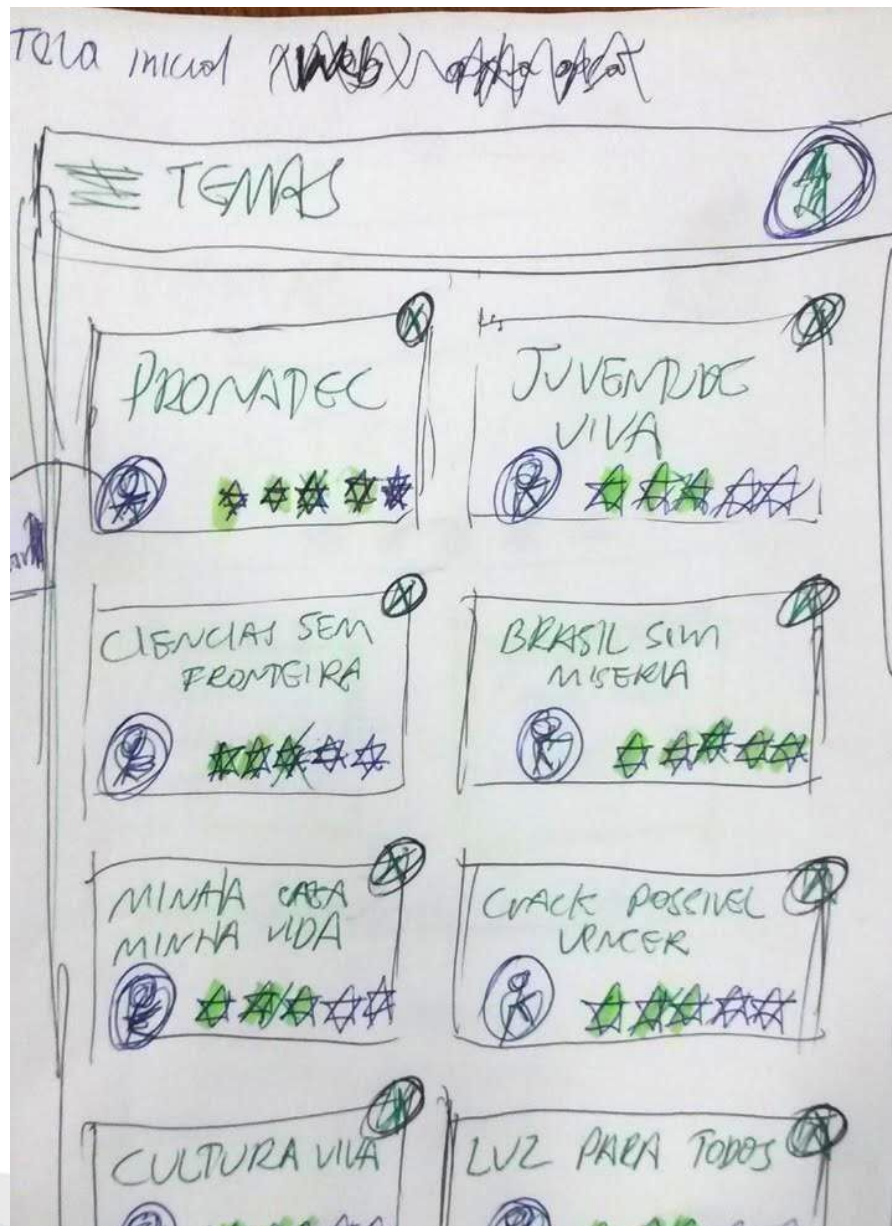 Tela inicial
TEMAS
PRONATEC
JUVENTUDE
VIVA
CIENCIAS SEM
FRONTEIRA
BRASIL SIM
MISERIA
MINHA CASA
MINHA VIDA
CRACK POSSIVEL
VENCER
CULTURA VIVA
LUZ PARA TODOS